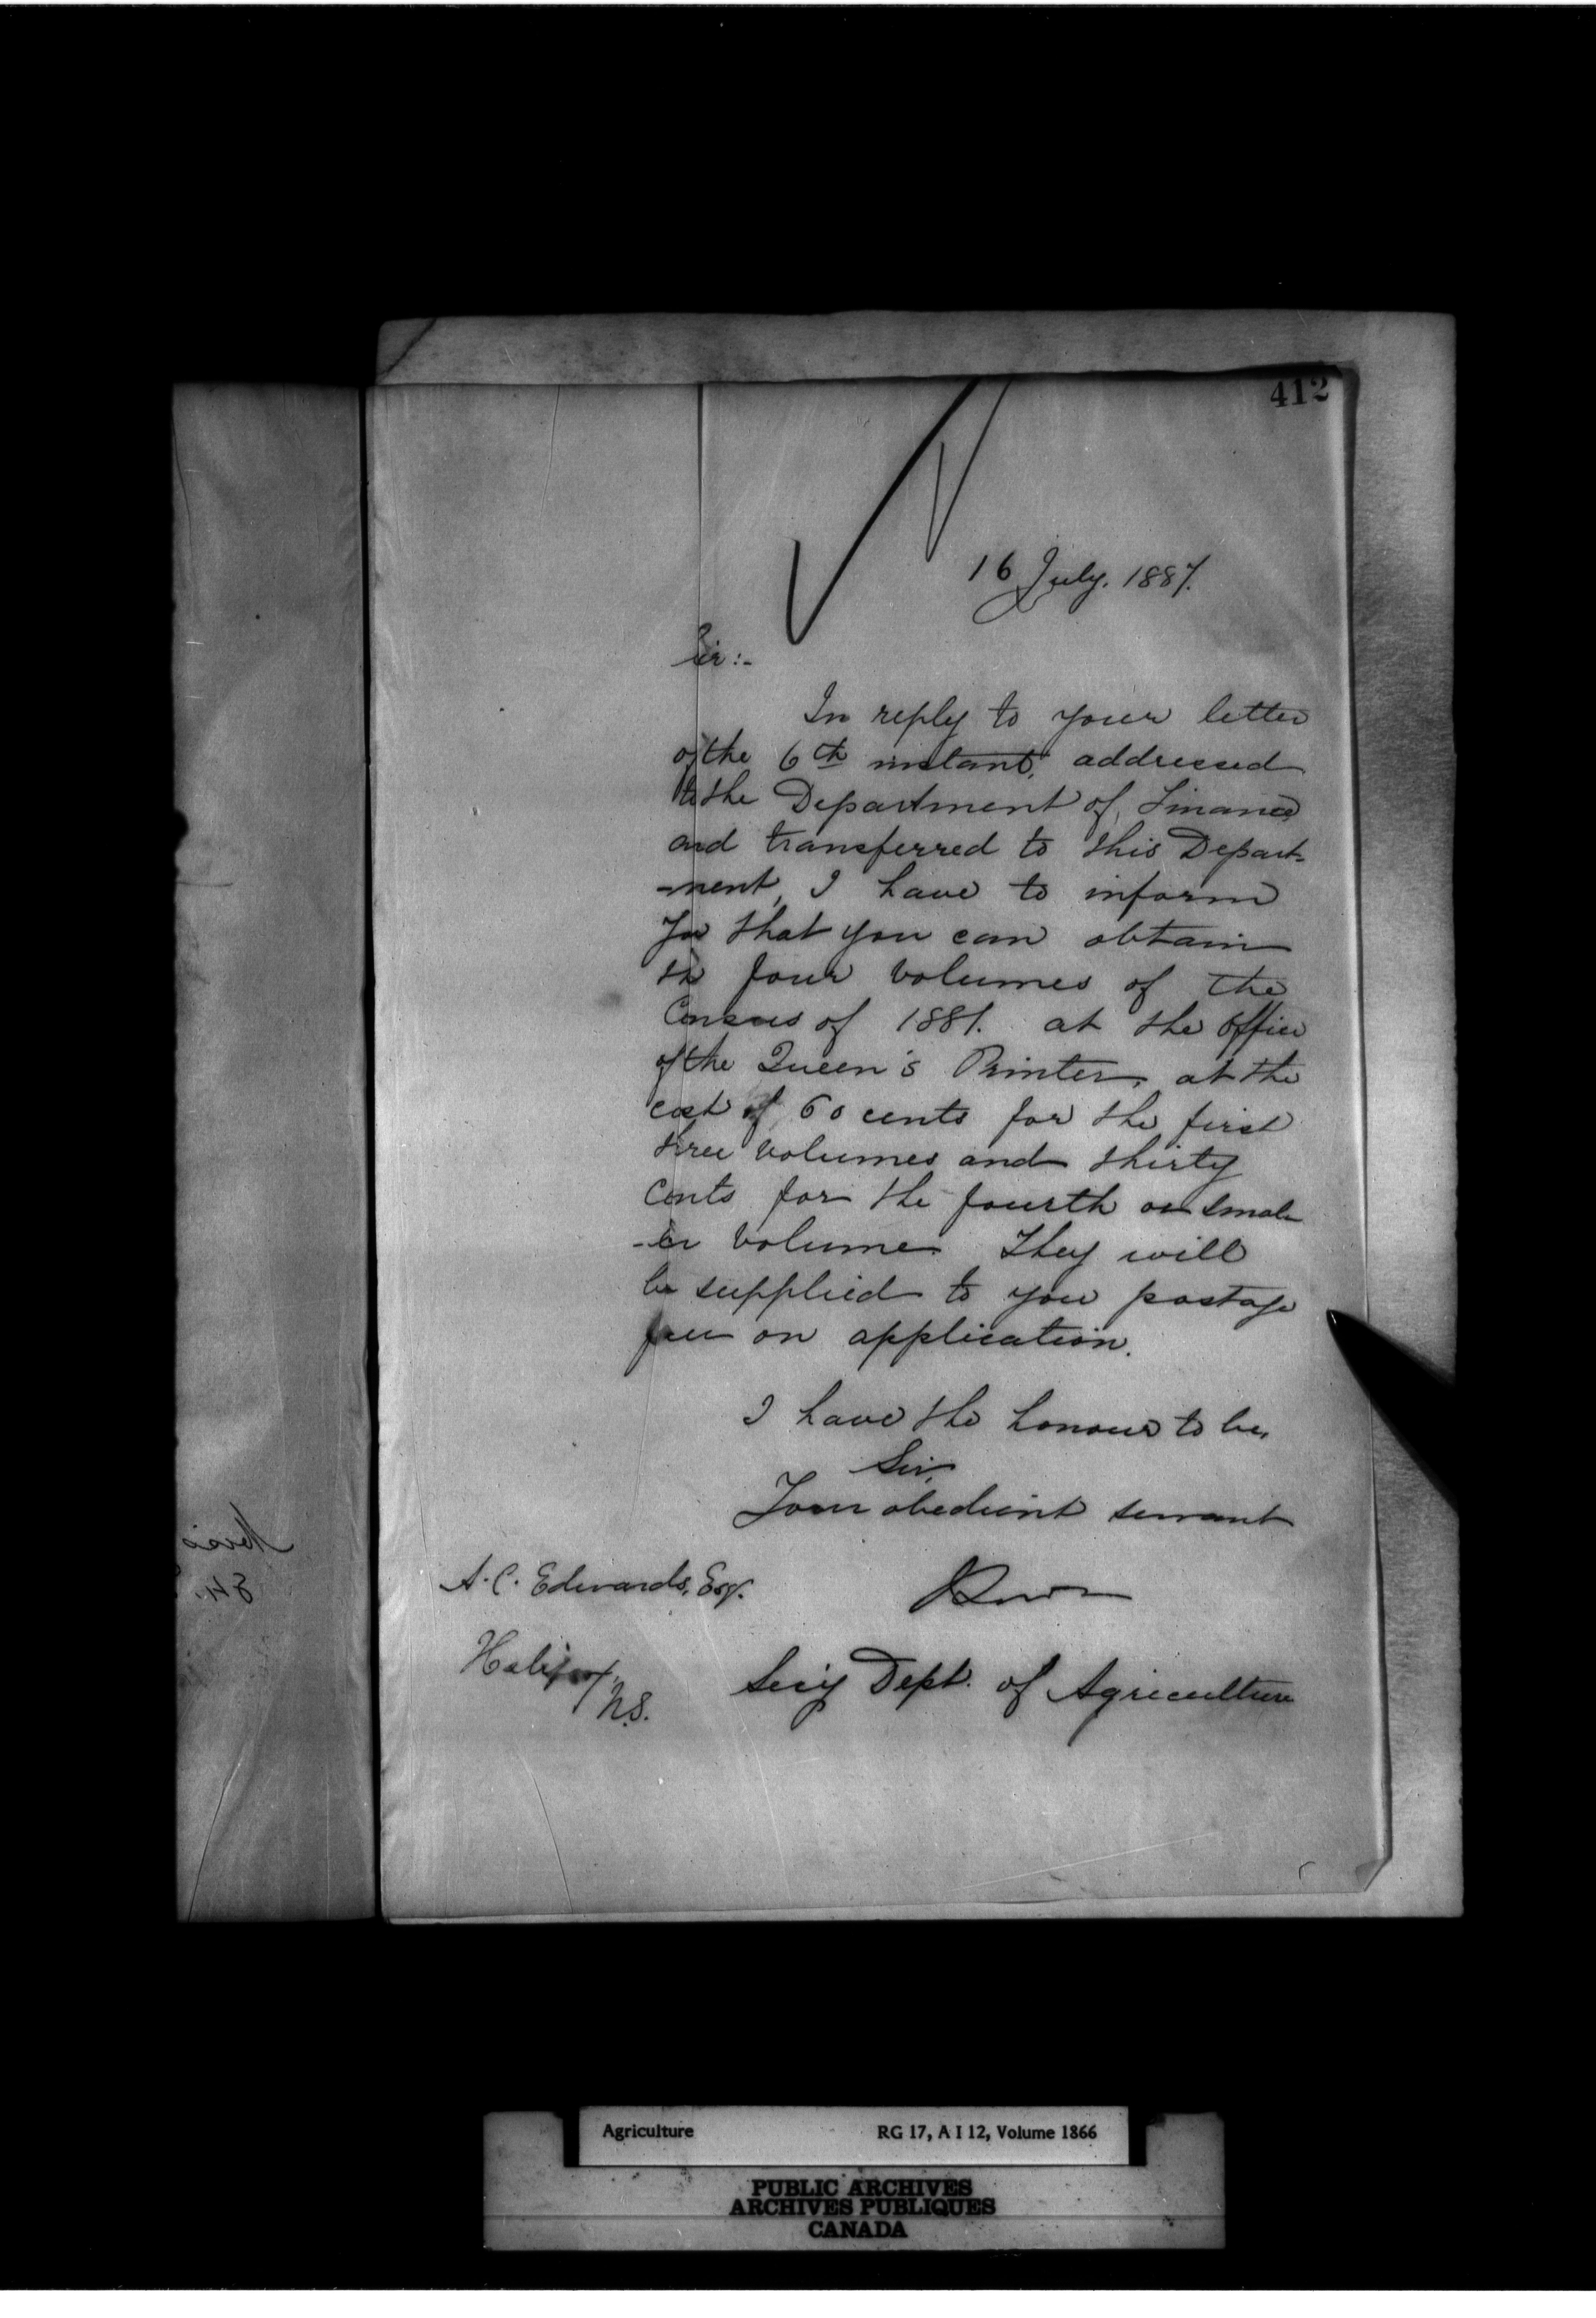 412
16 July. 1887.
Sir:-
In reply to your letter
of the 6th instant, addressed
to the Department of Finance
and transferred to this Depart-
-ment, I have to inform
you that you can obtain
the four volumes of the
Census of 1881. at the office
of the Queen's Printer, at the
cost of 60 cents for the first
three volumes and thirty
cents for the fourth or small-
-er volume. They will
be supplied to you postage
free on application.
I have the honour to be,
Sir,
Your obedient servant
A. C. Edwards, Esq.
Halifax,
N.S.
Secy Dept. of Agriculture
Agriculture RG 17, A I 12, Volume 1866
PUBLIC ARCHIVES
ARCHIVES PUBLIQUES
CANADA